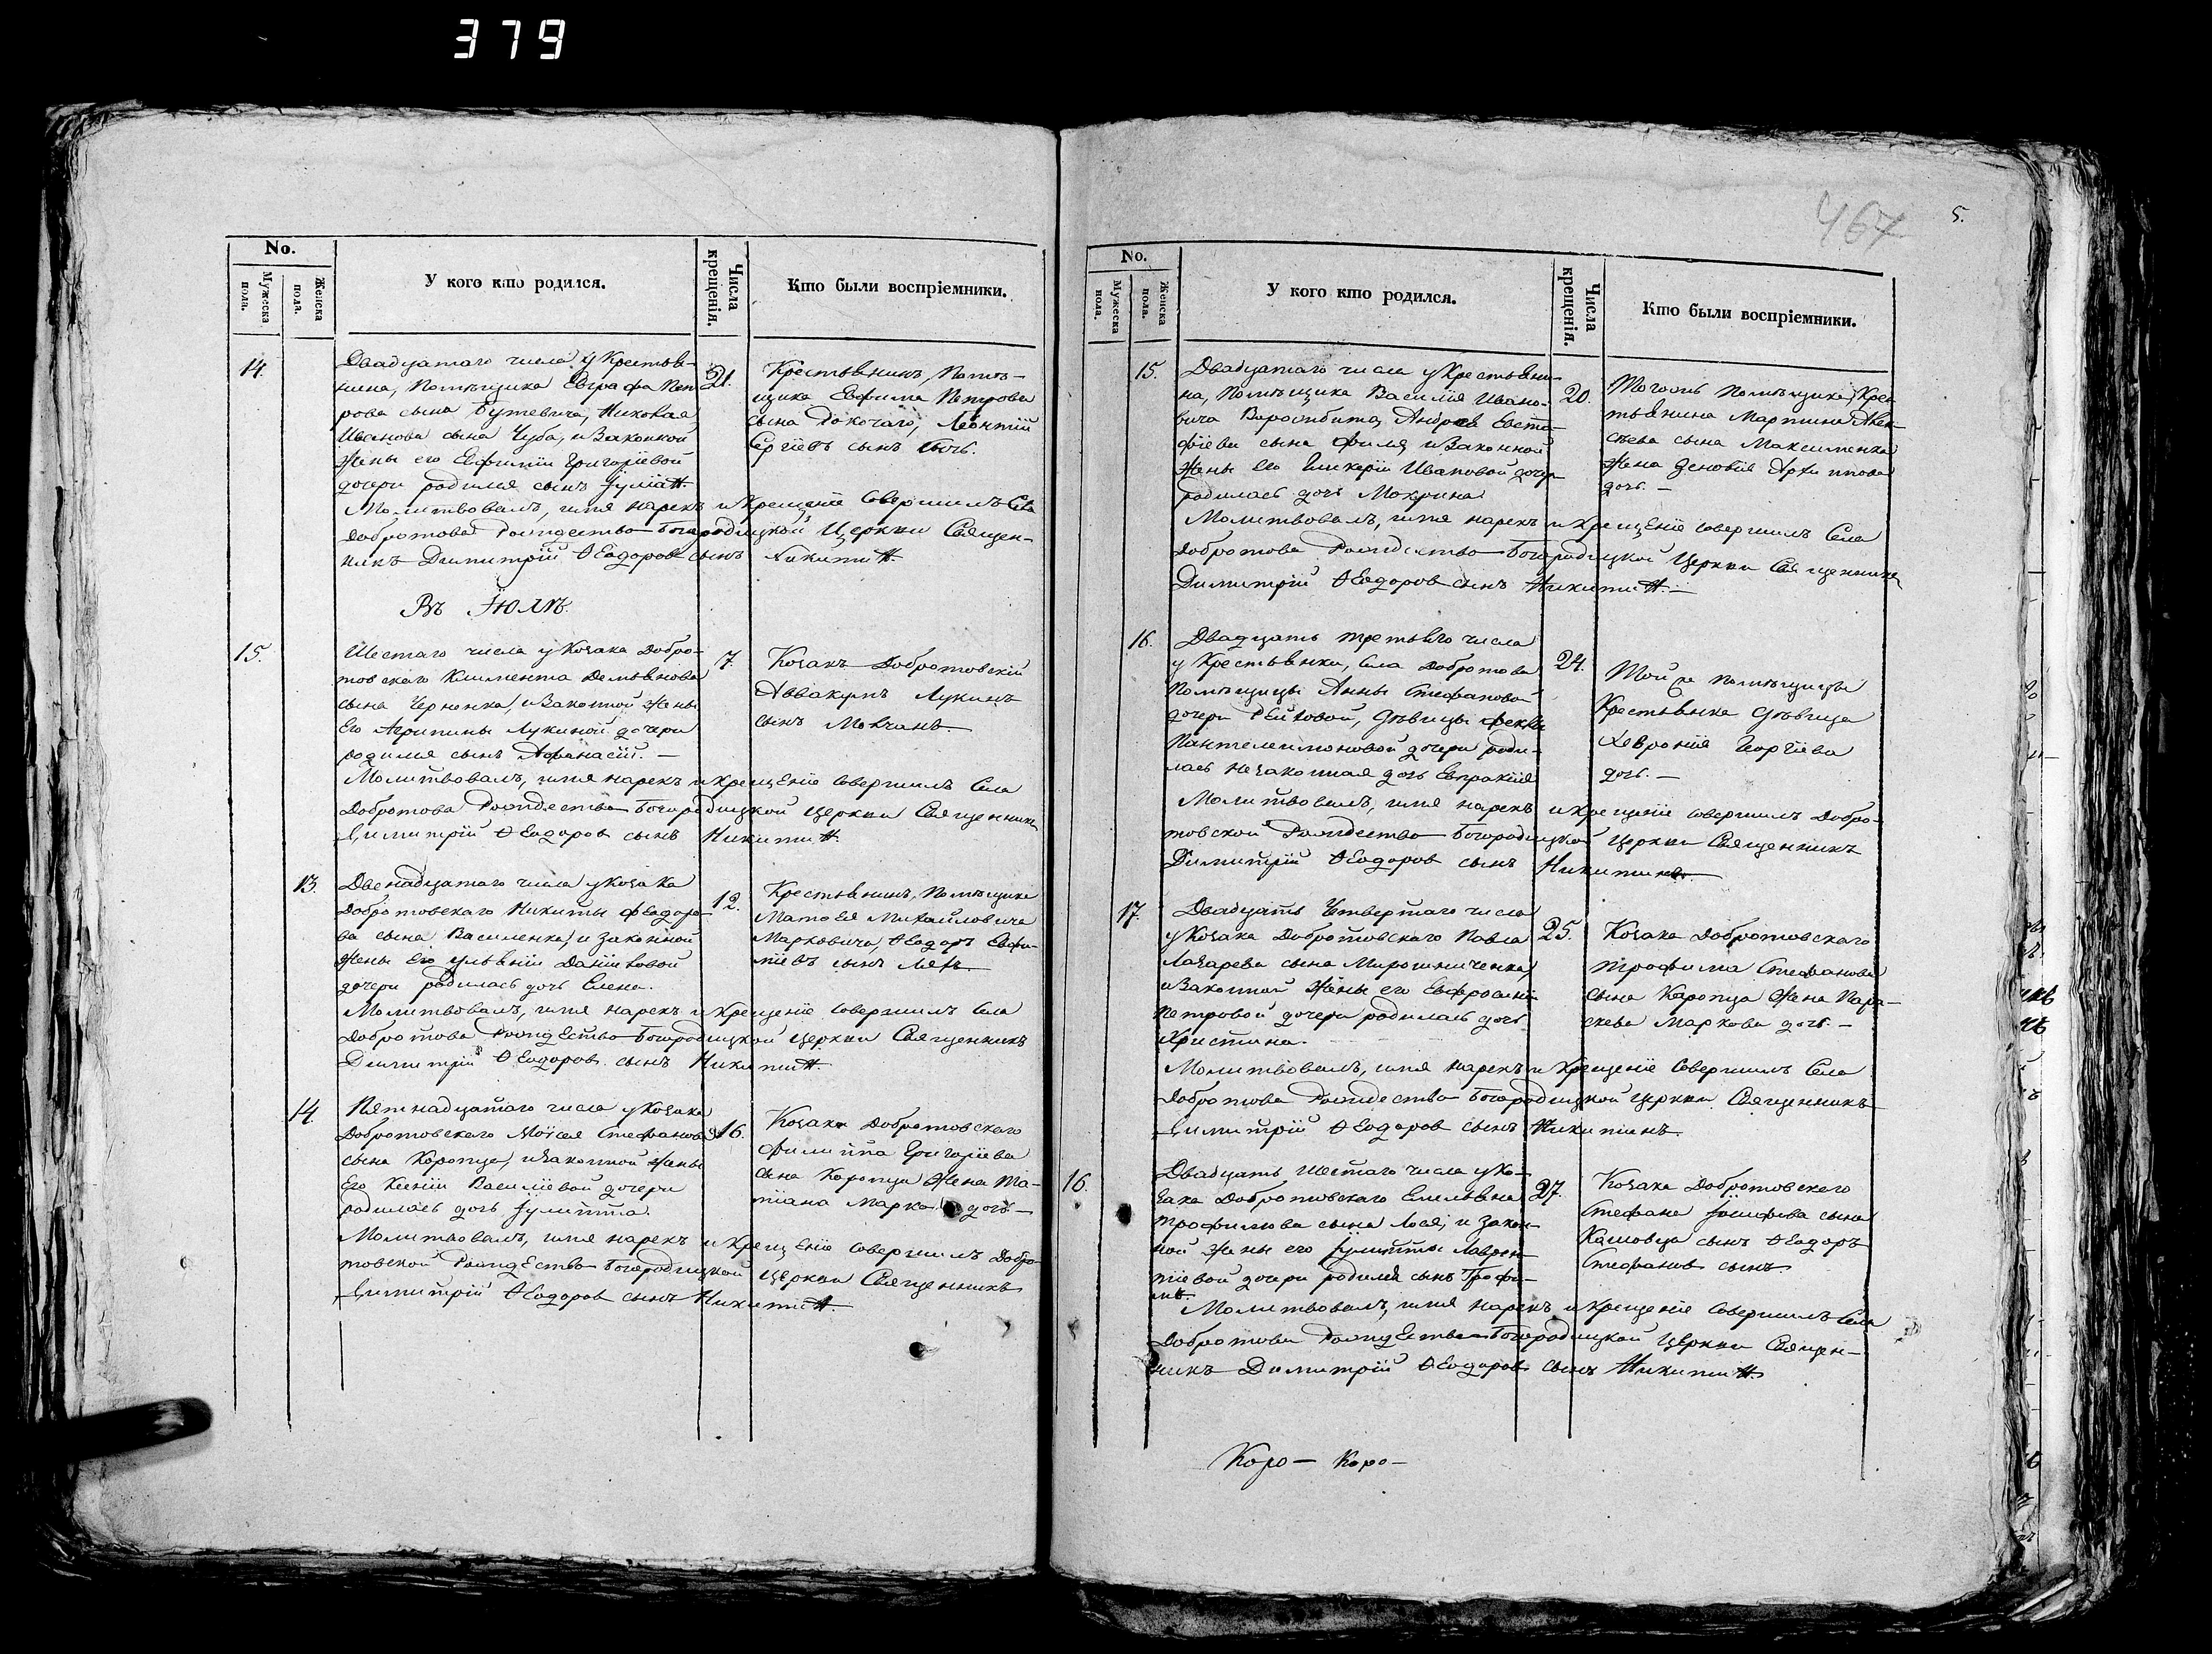 379
467
5.
No.
Мужеска пола.
Женска пола.
У кого кто родился.
Числа крещенія.
Кто были воспріемники.
14.
Двадцатаго числа у Крестья-
нина, Помѣщика Евграфа Пет-
рова сына Бутевича, Николая
Иванова сына Чуба, и Законной
Жены его Евфиміи Григоріевой
дочери родился сынъ
21.
Крестьянинъ, Помѣ-
щика Евфима Петрова
сына Леонтій
Сергіевъ сынъ
Молитвовалъ, имя нарекъ и Крещеніе Совершилъ Села
Добротова Рождество-Богородицкой Церкви Священ-
никъ Димитрій Ѳеодоровъ сынъ Никитин.
Въ Іюлѣ.
15.
Шестаго числа у Козака Добро-
товскаго Климента Демьянова
сына Черненка, и Законной Жены
Его Агрипины Лукиной дочери
родился сынъ Афанасій. —
7.
Козакъ Добротовскій
Аввакумъ Лукинъ
сынъ Мовчанъ.
Молитвовалъ, имя нарекъ и крещеніе Совершилъ Села
Добротова Рождества-Богородицкой Церкви Священникъ
Димитрій Ѳеодоров сынъ Никитин.
13.
Двенадцатаго числа у Козака
Добротовскаго Никиты Феодоро-
ва сына Василенка, и законной
Жены Его Ульяніи Даніиловой
дочери родилась дочь Елена.
12.
Крестьянинъ, Помѣщика
Матѳея Михайловича
Марковича, Ѳеодоръ Евфи-
міевъ сынъ
Молитвовалъ, имя нарекъ и Крещеніе Совершилъ Села
Добротова Рождество-Богородицкой Церкви Священникъ
Димитрій Ѳеодоров сынъ Никитин.
14.
Пятнадцатаго числа у Козака
Добротовскаго Моѵсея Стефанова
сына Коропца, и Законной Жены
Его Ксеніи Василіевой дочери
родилась дочь Іулитта.
16.
Козака Добротовскаго
Филиппа Григоріева
сына Коропца Жена Та-
тіана Марко дочь. —
Молитвовалъ, имя нарекъ и Крещеніе Совершилъ Добро-
товской Рождество-Богородицкой Церкви Священникъ
Димитрій Ѳеодоров сынъ Никитин.
No.
Мужеска пола.
Женска пола.
У кого кто родился.
Числа крещенія.
Кто были воспріемники.
15.
Двадцатаго числа у Крестьяни-
на, Помѣщика Василія Ивано-
вича Воростбита, Андрея Евста-
фіева сына Филя и Законной
Жены Его Гликеріи Ивановой дочери
родилась дочь Мокрина.
20.
Тогожъ Помѣщика, Крес-
тьянина Мартина Алек-
сѣева сына Максименка
Жена Зеновія Архипова
дочь. —
Молитвовалъ, имя нарекъ и крещеніе совершилъ Села
Добротова Рождество-Богородицкой Церкви Священникъ
Димитрій Ѳеодоров сынъ Никитин. —
16.
Двадцать третьяго числа
у Крестьянки, Села Добротова
Помѣщицы Анны Стефановой
дочери Рейковой, Дѣвицы Феклы
Пантелеимоновой дочери роди-
лась незаконная дочь Евпраксія
24.
Той же помѣщицы
Крестьянка Дѣвица
Хевронія Георгіева
дочь. —
Молитвовалъ, имя нарекъ и крещеніе совершилъ Добро-
товской Рождество-Богородицкой Церкви Священникъ
Димитрій Ѳеодоров сынъ Никитинъ.
17.
Двадцать Четвертаго числа
у Козака Добротовскаго Павла
Лазарева сына Мирошниченка,
и Законной Жены его Евфросиніи
Петровой дочери родилась дочь
Христина.
25.
Козака Добротовскаго
Трофима Стефанова
сына Коропца Жена Пара-
скева Маркова дочь. —
Молитвовалъ, имя нарекъ и Крещеніе Совершилъ Села
Добротова Рождество-Богородицкой Церкви Священникъ
Димитрій Ѳеодоров сынъ Никитинъ.
16.
Двадцать шестаго числа у Ко-
зака Добротовскаго Емельяна
Трофимова сына Лося, и Закон-
ной Жены его Іулитты Лаврен-
тіевой дочери родился сынъ Трофи-
мъ.
27.
Козака Добротовскаго
Стефана Іосифова сына
сынъ Ѳеодоръ
Стефановъ сынъ.
Молитвовалъ, имя нарекъ и крещеніе Совершилъ Села
Добротова Рождество-Богородицкой Церкви Священ-
никъ Димитрій Ѳеодоров сынъ Никитин.
Коро — Коро —